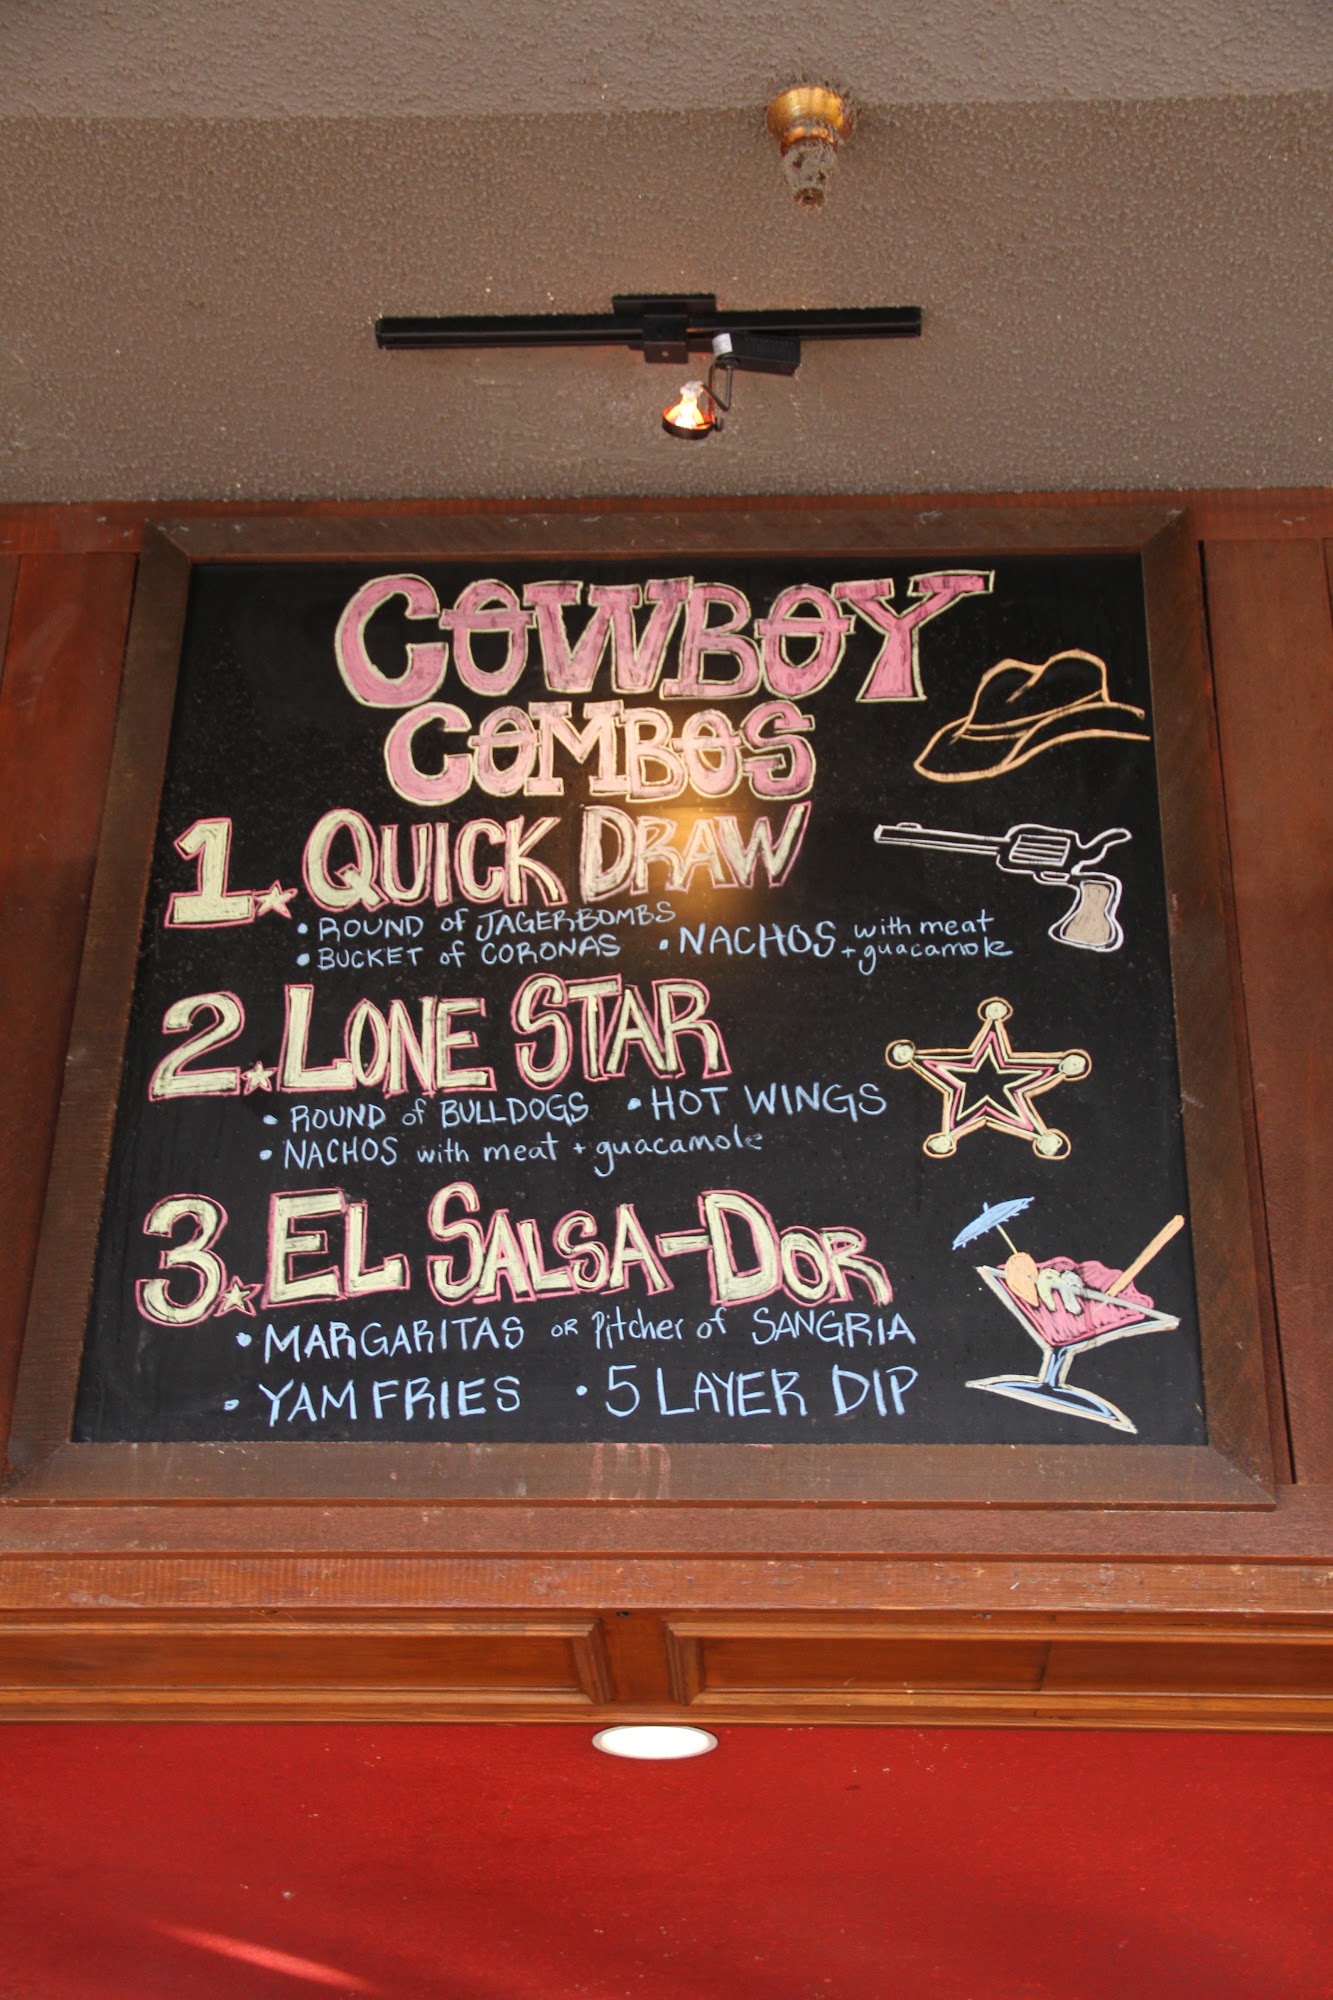 COWBOY
COMBOS
1. QUICK DRAW
• ROUND of JAGERBOMBS
• BUCKET of CORONAS • NACHOS with meat + guacamole
2. LONE STAR
• ROUND of BULLDOGS • HOT WINGS
• NACHOS with meat + guacamole
3. EL SALSA-DOR
• MARGARITAS OR Pitcher of SANGRIA
• YAM FRIES • 5 LAYER DIP